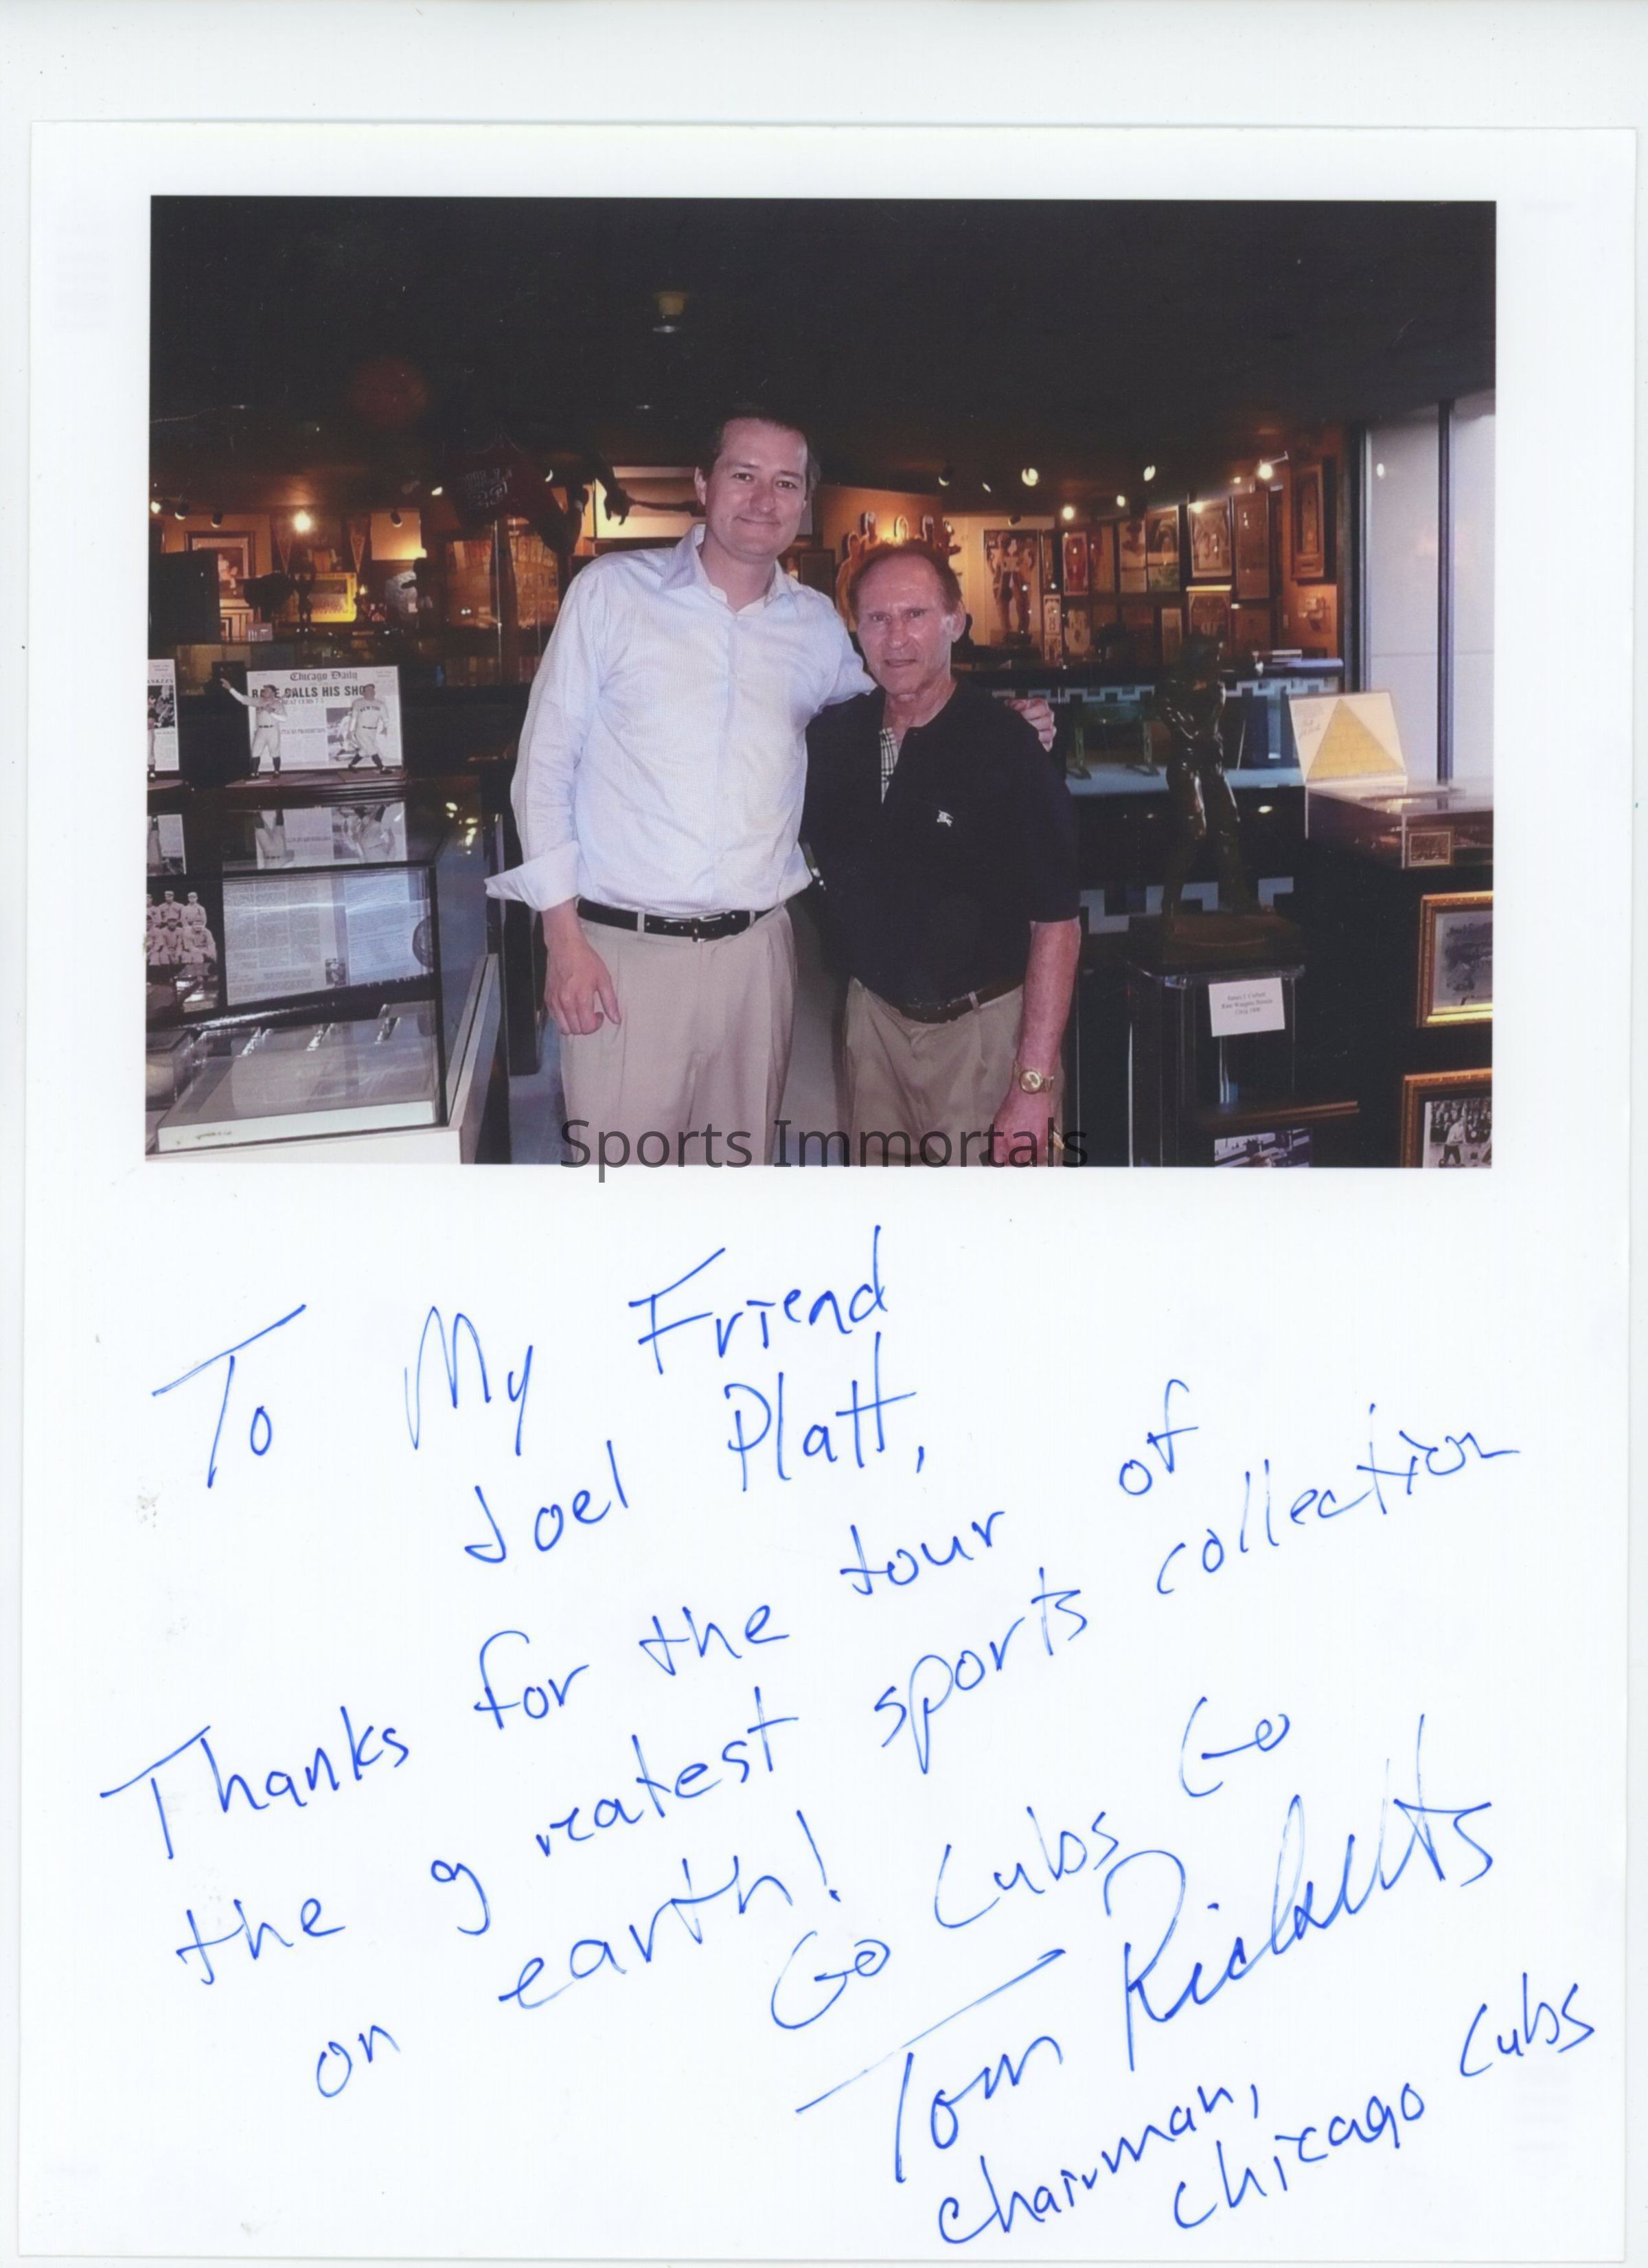 Chicago Daily
CALLS HIS SHO
Sports Immortals
To My Friend
Joel Platt,
Thanks for the tour of
the greatest sports collection
on earth!
Go Cubs Go
Tom Ricketts
Chairman,
Chicago Cubs